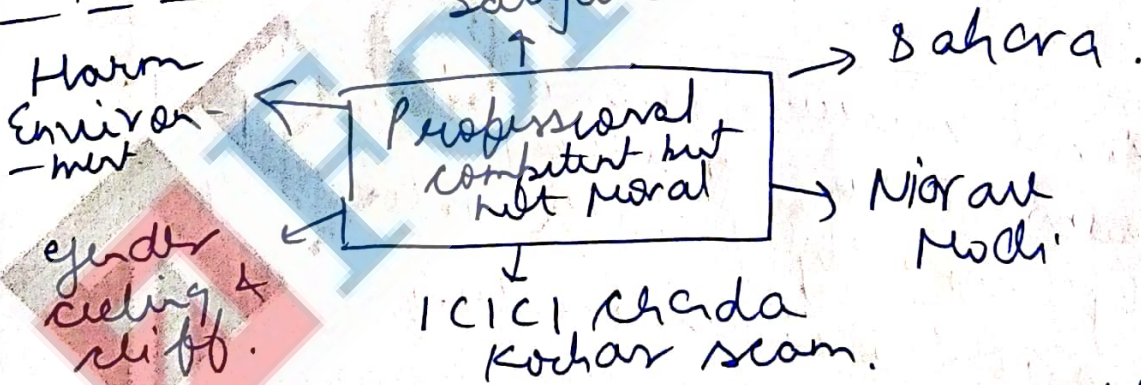 Sahara.
Harm
Environ-
-ment
Professional
competent but
not moral
Nirav
Modi.
gender
ceiling &
cliff.
ICICI chada
Kochar scam.